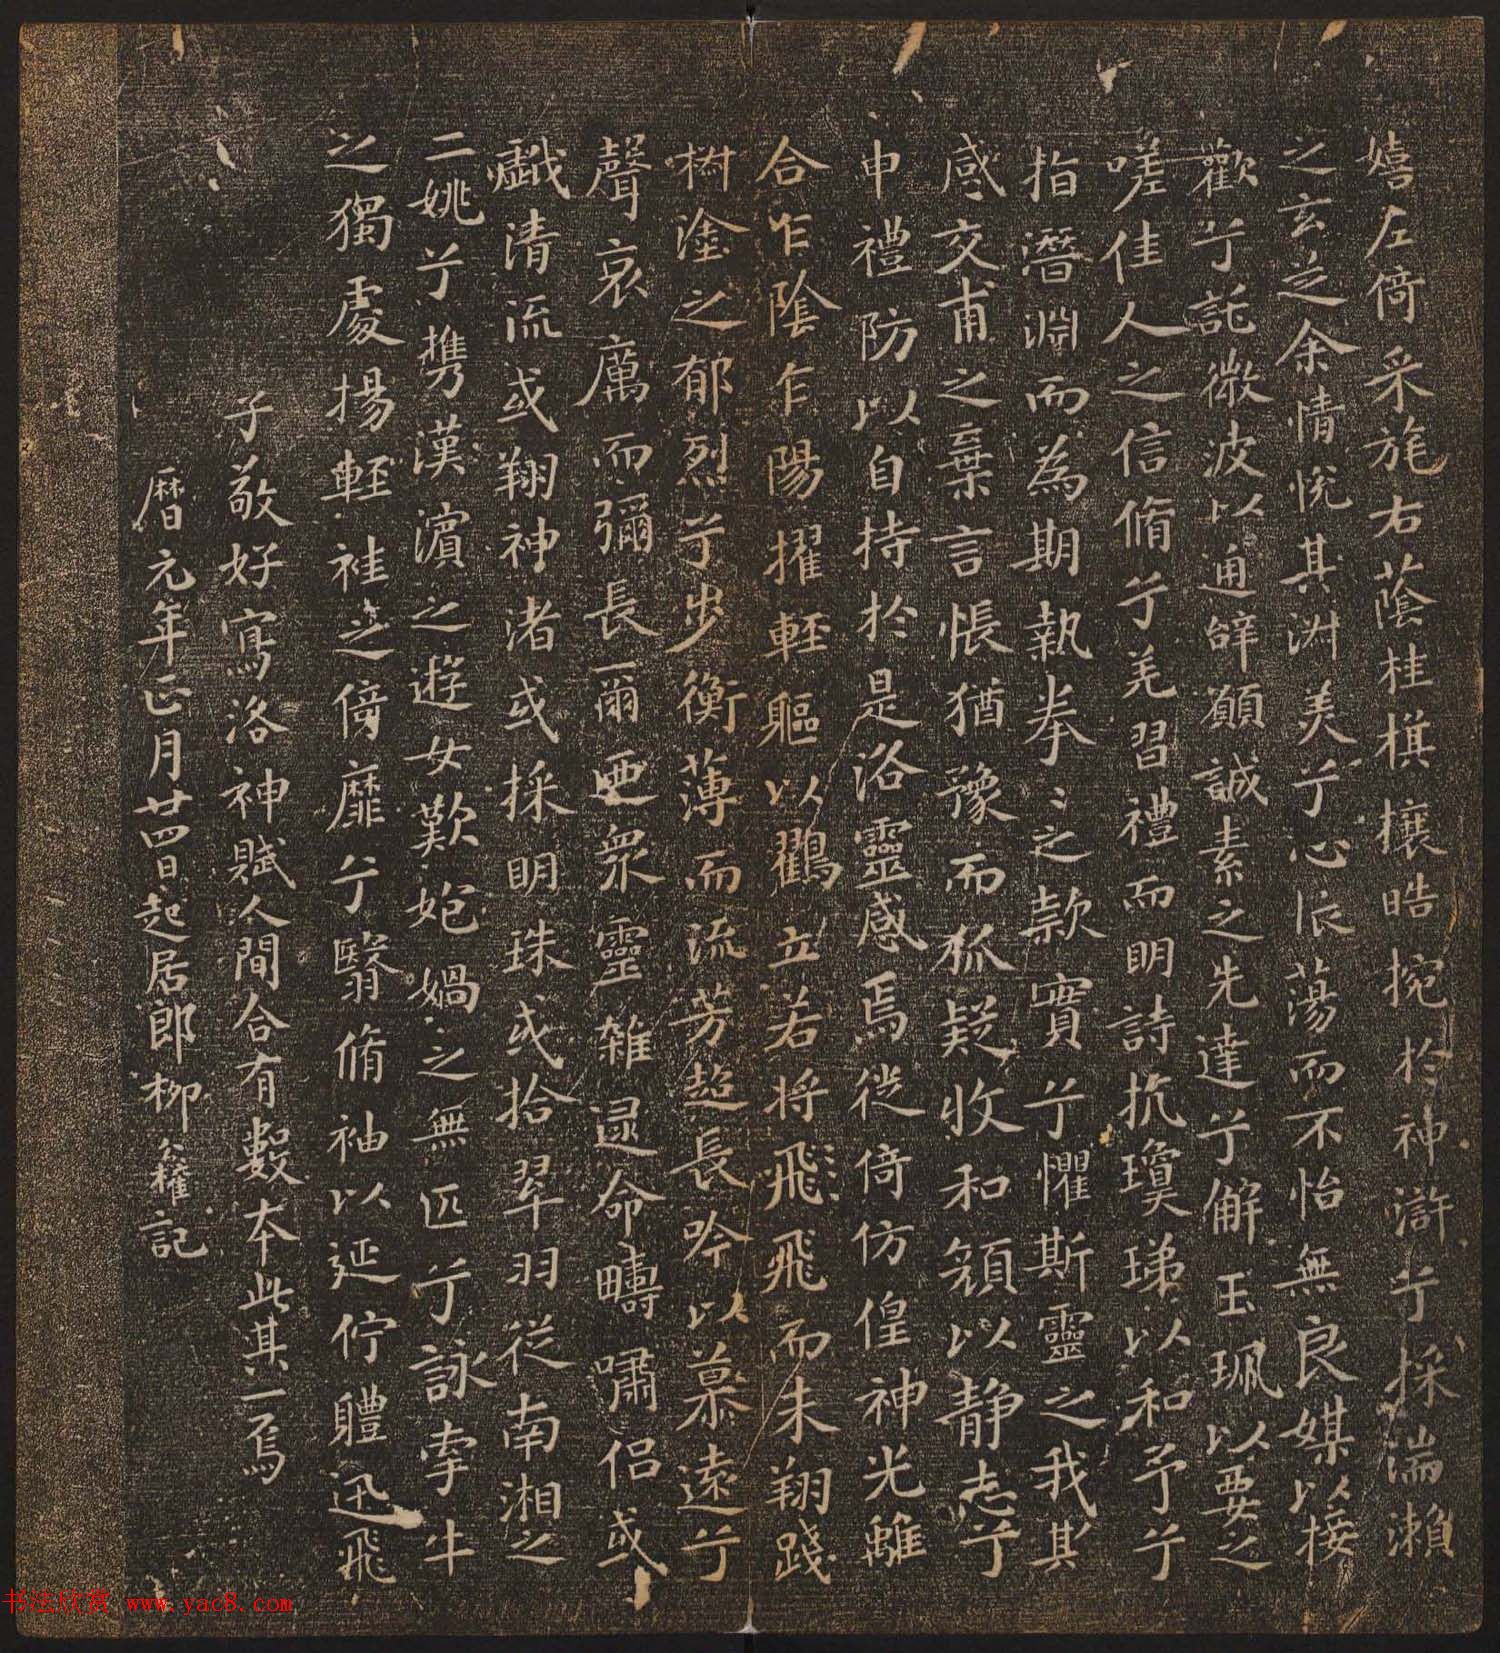 嬉左倚采旄右蔭桂棋攘皓捥於神滸兮採湍瀨
之玄芝余情悅其淑美兮心依蕩而不怡無良媒以接
歡兮託微波以通辭願誠素之先達兮解玉珮以要之
嗟佳人之信脩兮羌習禮而明詩抗瓊珶以和予兮
指潛淵而為期執拳〻之款實兮懼斯靈之我欺
感交甫之棄言悵猶豫而狐疑收和顏以靜志兮
申禮防以自持於是洛靈感焉徙倚仿偟神光離
合乍陰乍陽擢輕軀以鶴立若將飛飛而未翔踐
樹塗之郁烈兮步衡薄而流芳超長吟以慕遠兮
聲哀厲而彌長爾迺衆靈雜遝命疇嘯侶或
戲清流或翔神渚或採明珠或拾翠羽從南湘之
二姚兮攜漢濱之遊女歎媲媧之無匹兮詠牽牛
之獨處揚輕袿之倚靡兮翳脩袖以延佇體迅飛
子敬好寫洛神賦人間合有數本此其一焉
曆元年正月廿四日起居郎柳公權記
书法欣赏 www.yac8.com